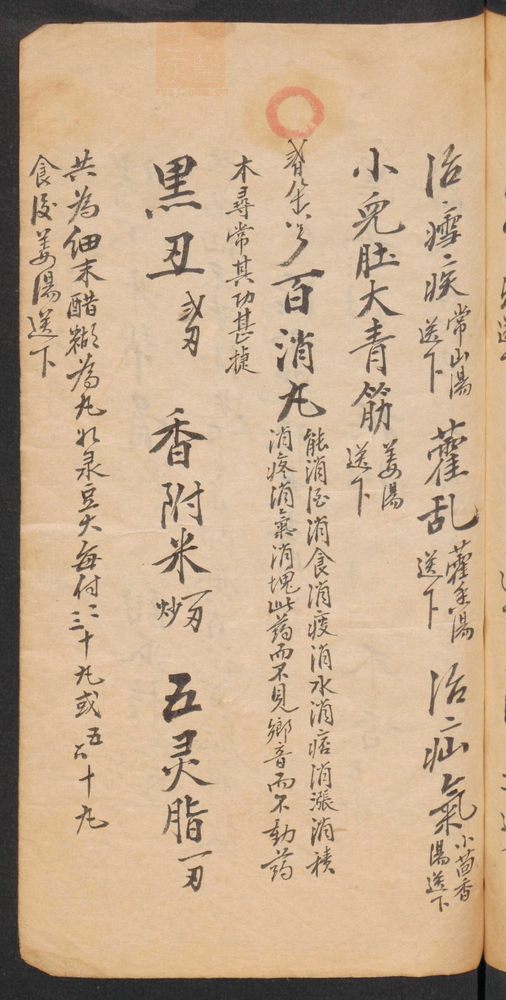 治瘧疾 常山湯送下 藿乱 藿香湯送下 治疝氣 小茴香湯送下
小兒肚大青筋 姜湯送下
百消丸 能消酒消食消痰消水消痞消漲消積
消疼消氣消塊此药而不見鄉音而不動药
木尋常其功甚捷
黑丑 香附米 炒 五灵脂 一刃
共為细末醋糊為丸如录豆大每付二三十丸或五六十丸
食後姜湯送下